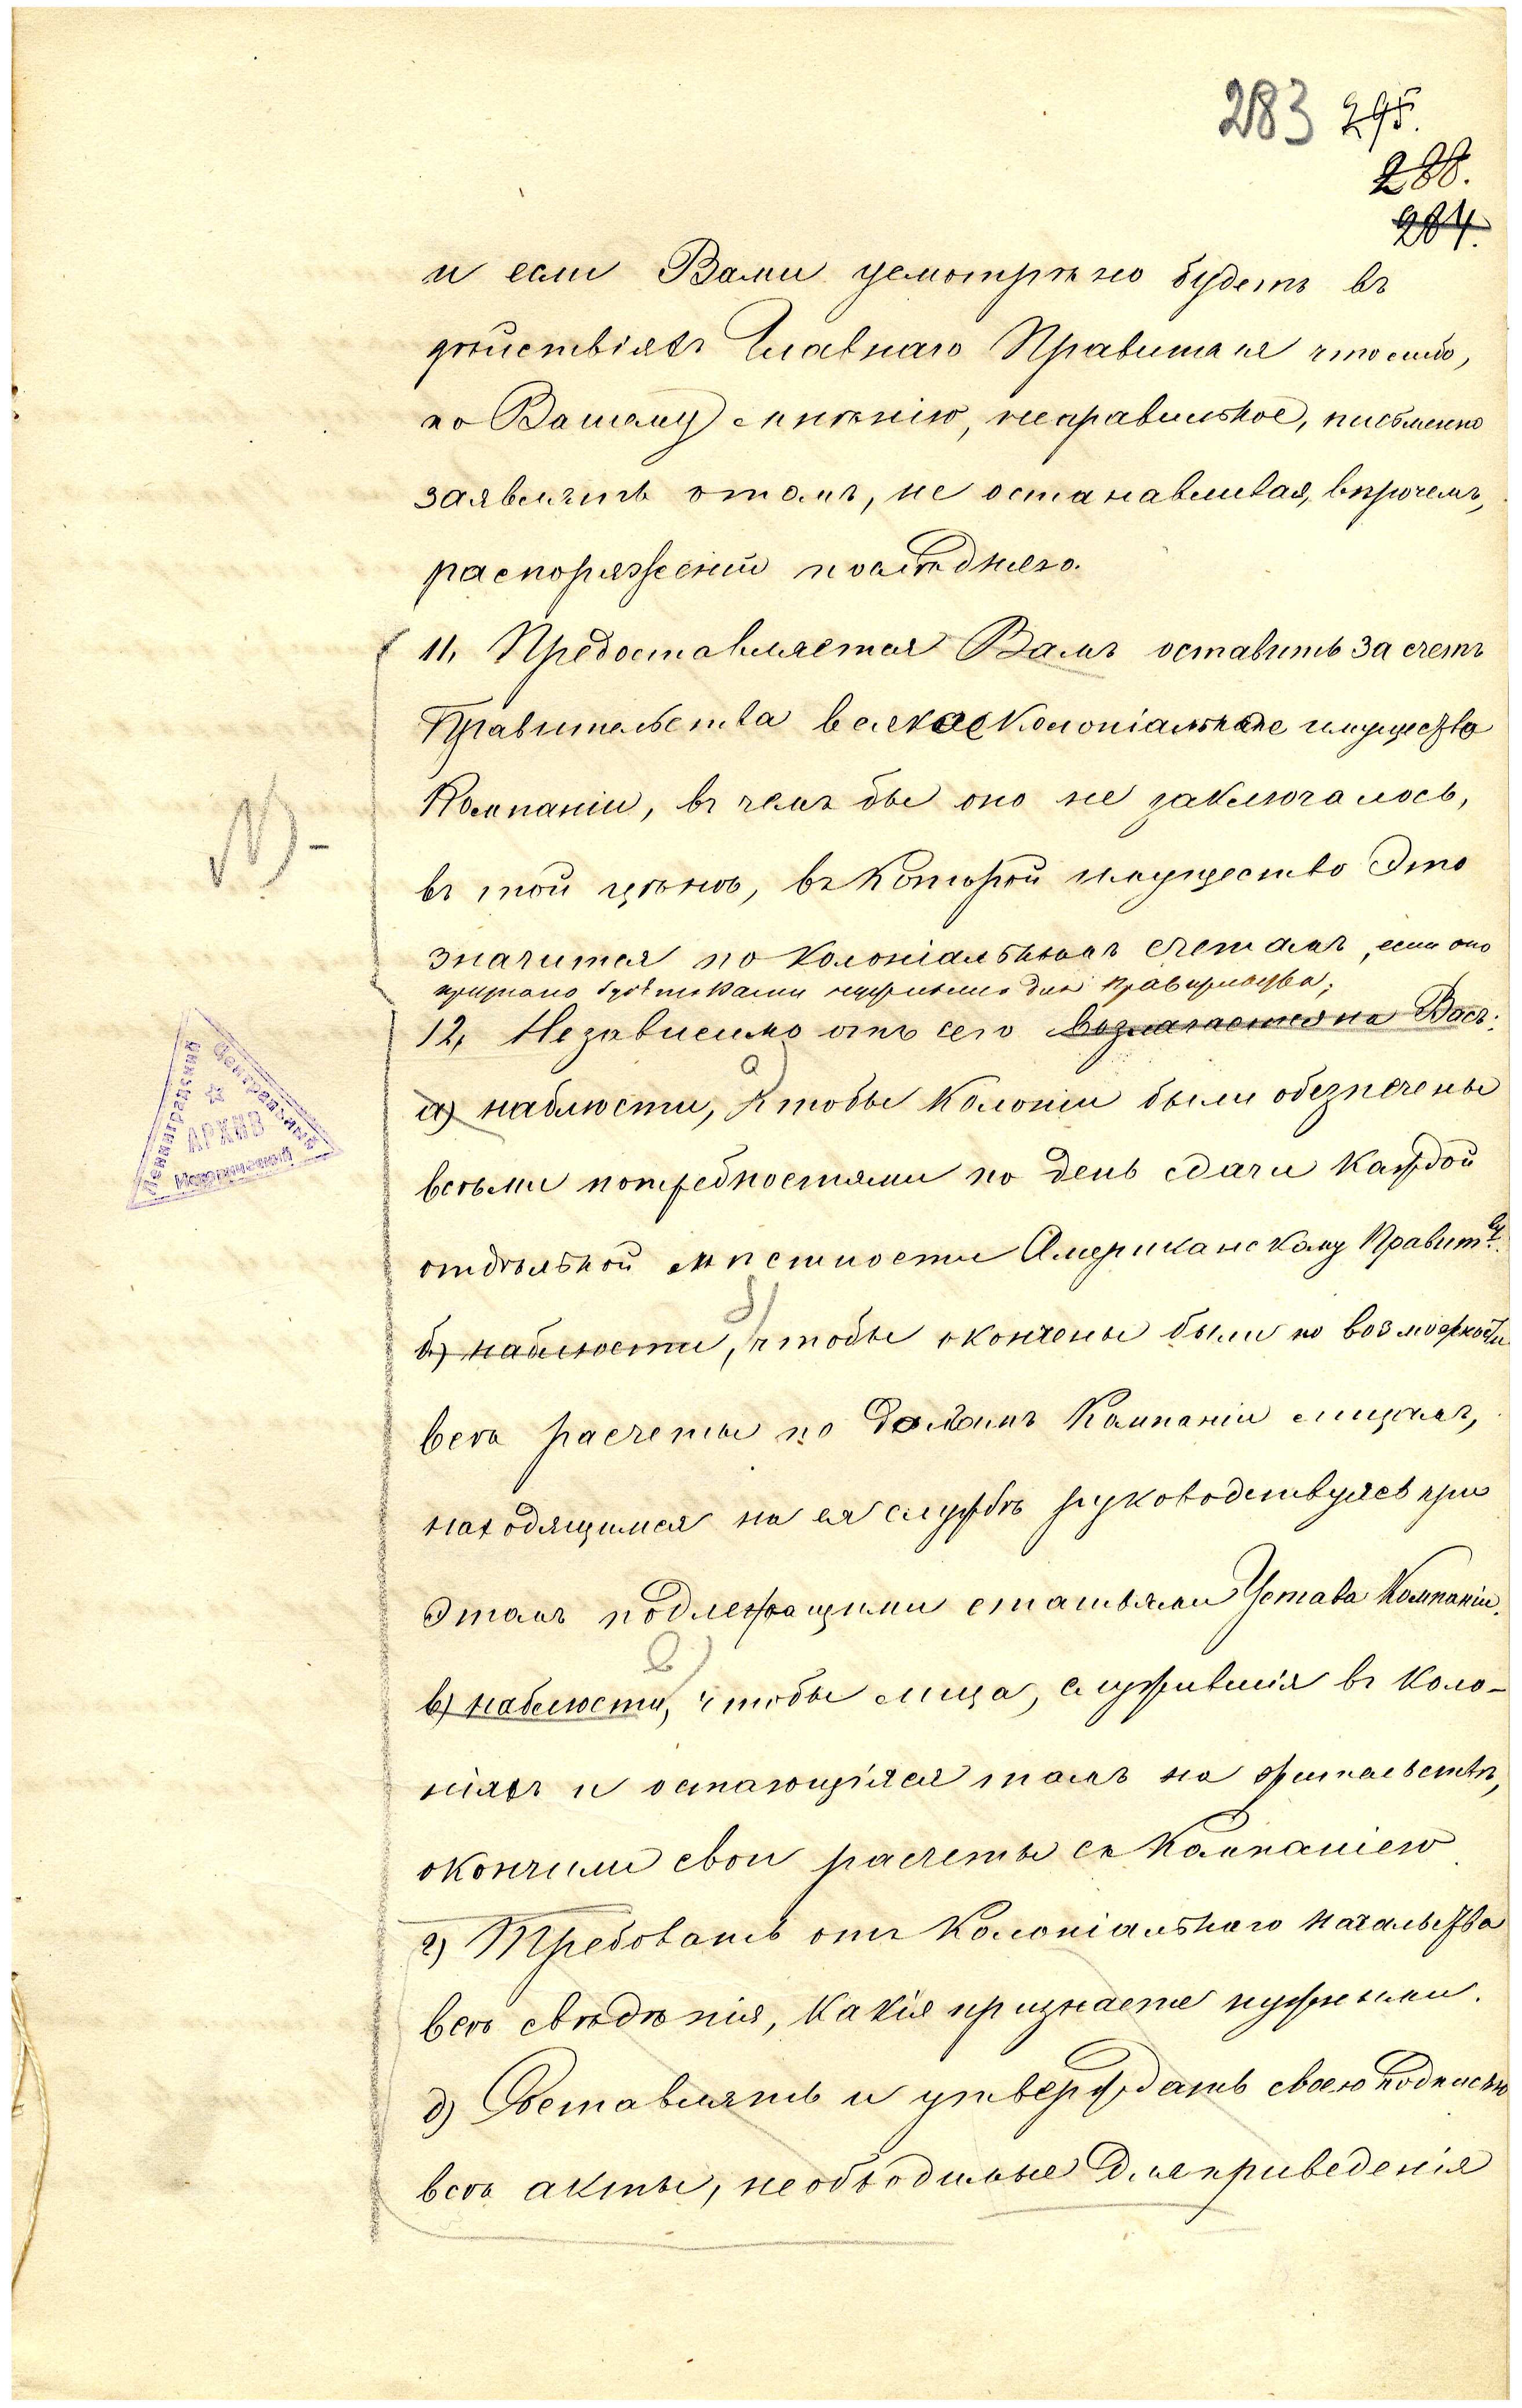 283 295.
288.
284.
и если Вами усмотрѣно будетъ въ
дѣйствіяхъ Главнаго Правителя что либо,
по Вашему мнѣнію, неправильное, письменно
заявлять о томъ, не останавливая, впрочемъ,
распоряженій послѣдняго.
11, Предоставляется Вамъ оставить за счетъ
Правительства всякое Колоніальное имущество
Компаніи, въ чемъ бы оно не заключалось,
въ той цѣнѣ, въ которой имущество это
значится по Колоніальнымъ счетамъ, если оно
признано будетъ Вами нужнымъ для Правительства;
12, Независимо отъ сего возлагается на Васъ:
а)
а) наблюсти, чтобы Колоніи были обезпечены
всѣми потребностями по день сдачи каждой
отдѣльной мѣстности Американскому Правит-у.
б)
б) наблюсти, чтобы окончены были по возможности
всѣ расчеты по долгамъ Компаніи лицамъ,
находящимся на ея службѣ руководствуясь при
этомъ подлежащими статьями Устава Компаніи.
в)
в) наблюсти, чтобы лица, служившія въ Коло-
ніяхъ и остающіяся тамъ на жительствѣ,
окончили свои расчеты съ Компаніею
г) Требовать отъ Колоніальнаго начальства
всѣ свѣдѣнія, какія признаете нужными.
д) Составлять и утверждать своею подписью
всѣ акты, необходимые для приведенія
Ленинградский
Центральный
Исторический
АРХИВ